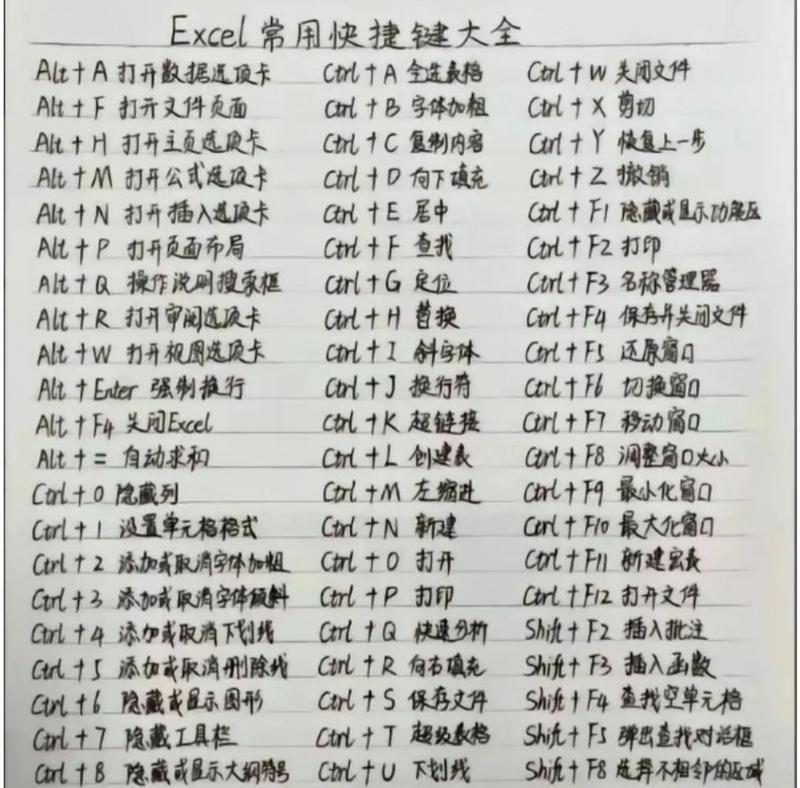 Excel常用快捷键大全
Alt+A 打开数据选项卡
Alt+F 打开文件页面
Alt+H 打开主页选项卡
Alt+M 打开公式选项卡
Alt+N 打开插入选项卡
Alt+P 打开页面布局
Alt+Q 操作说明搜索框
Alt+R 打开审阅选项卡
Alt+W 打开视图选项卡
Alt+Enter 强制换行
Alt+F4 关闭Excel
Alt+= 自动求和
Ctrl+0 隐藏列
Ctrl+1 设置单元格格式
Ctrl+2 添加或取消字体加粗
Ctrl+3 添加或取消字体倾斜
Ctrl+4 添加或取消下划线
Ctrl+5 添加或取消删除线
Ctrl+6 隐藏或显示图形
Ctrl+7 隐藏工具栏
Ctrl+8 隐藏或显示大纲符号
Ctrl+A 全选表格
Ctrl+B 字体加粗
Ctrl+C 复制内容
Ctrl+D 向下填充
Ctrl+E 居中
Ctrl+F 查找
Ctrl+G 定位
Ctrl+H 替换
Ctrl+I 斜字体
Ctrl+J 换行符
Ctrl+K 超链接
Ctrl+L 创建表
Ctrl+M 左缩进
Ctrl+N 新建
Ctrl+O 打开
Ctrl+P 打印
Ctrl+Q 快速分析
Ctrl+R 向右填充
Ctrl+S 保存文件
Ctrl+T 超级表格
Ctrl+U 下划线
Ctrl+W 关闭文件
Ctrl+X 剪切
Ctrl+Y 恢复上一步
Ctrl+Z 撤销
Ctrl+F1 隐藏或显示功能区
Ctrl+F2 打印
Ctrl+F3 名称管理器
Ctrl+F4 保存并关闭文件
Ctrl+F5 还原窗口
Ctrl+F6 切换窗口
Ctrl+F7 移动窗口
Ctrl+F8 调整窗口大小
Ctrl+F9 最小化窗口
Ctrl+F10 最大化窗口
Ctrl+F11 新建宏表
Ctrl+F12 打开文件
Shift+F2 插入批注
Shift+F3 插入函数
Shift+F4 查找空单元格
Shift+F5 弹出查找对话框
Shift+F8 选择不相邻的区域